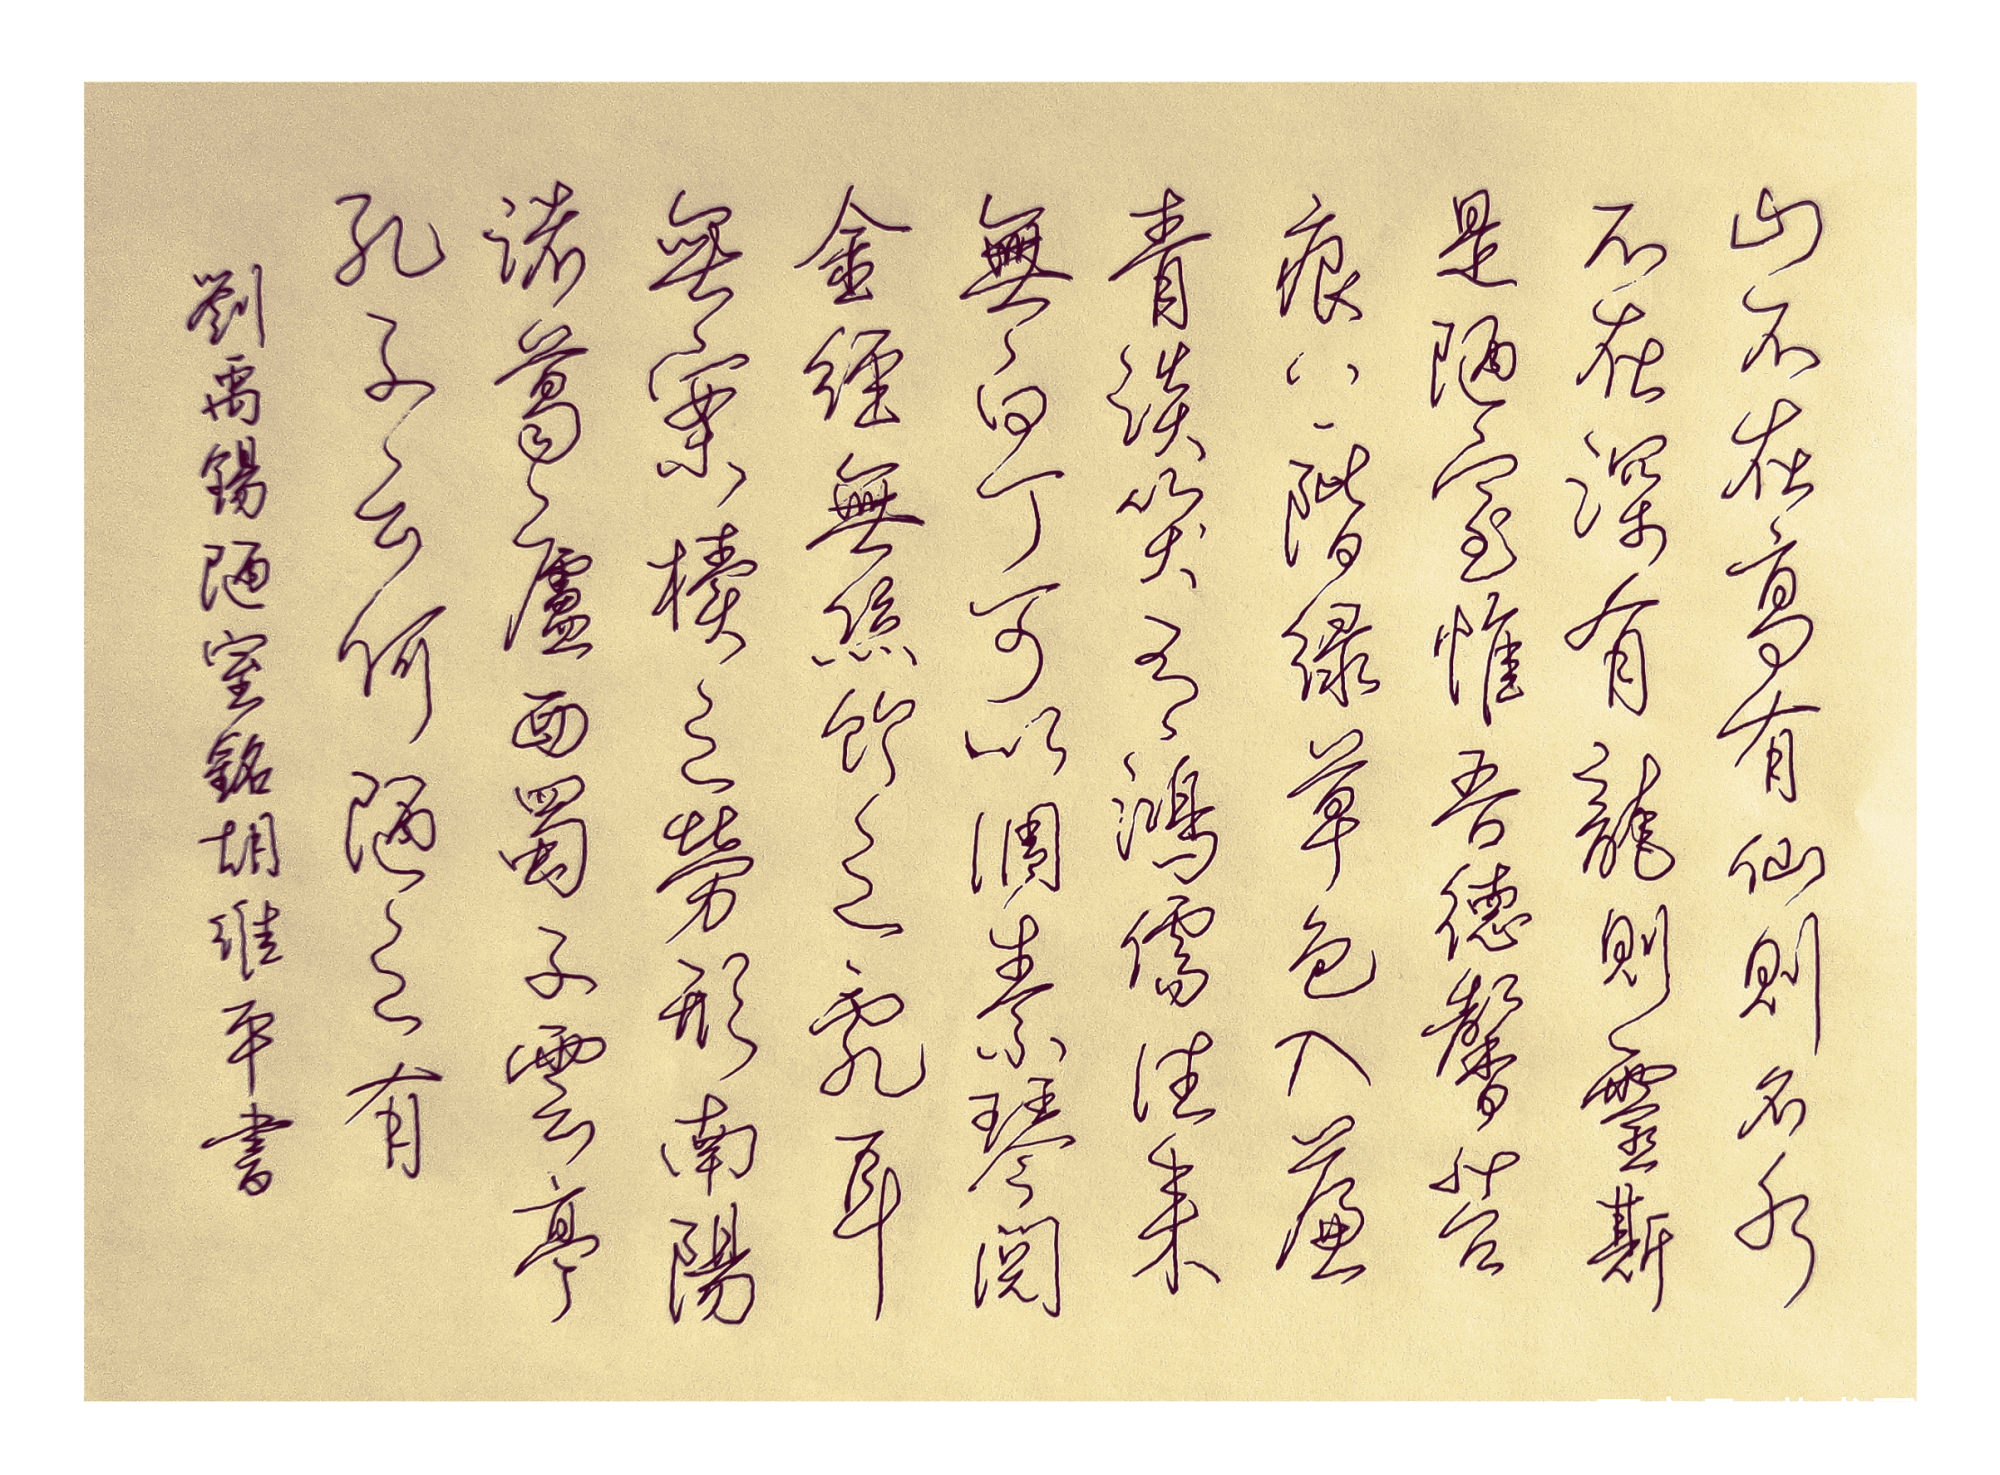 山不在高有仙則名水
不在深有龍則靈斯
是陋室惟吾德馨苔
痕上階綠草色入簾
青談笑有鴻儒往来
無白丁可以調素琴閱
金經無絲竹之亂耳
無案牘之勞形南陽
諸葛廬西蜀子雲亭
孔子云何陋之有
劉禹錫陋室銘胡維平書